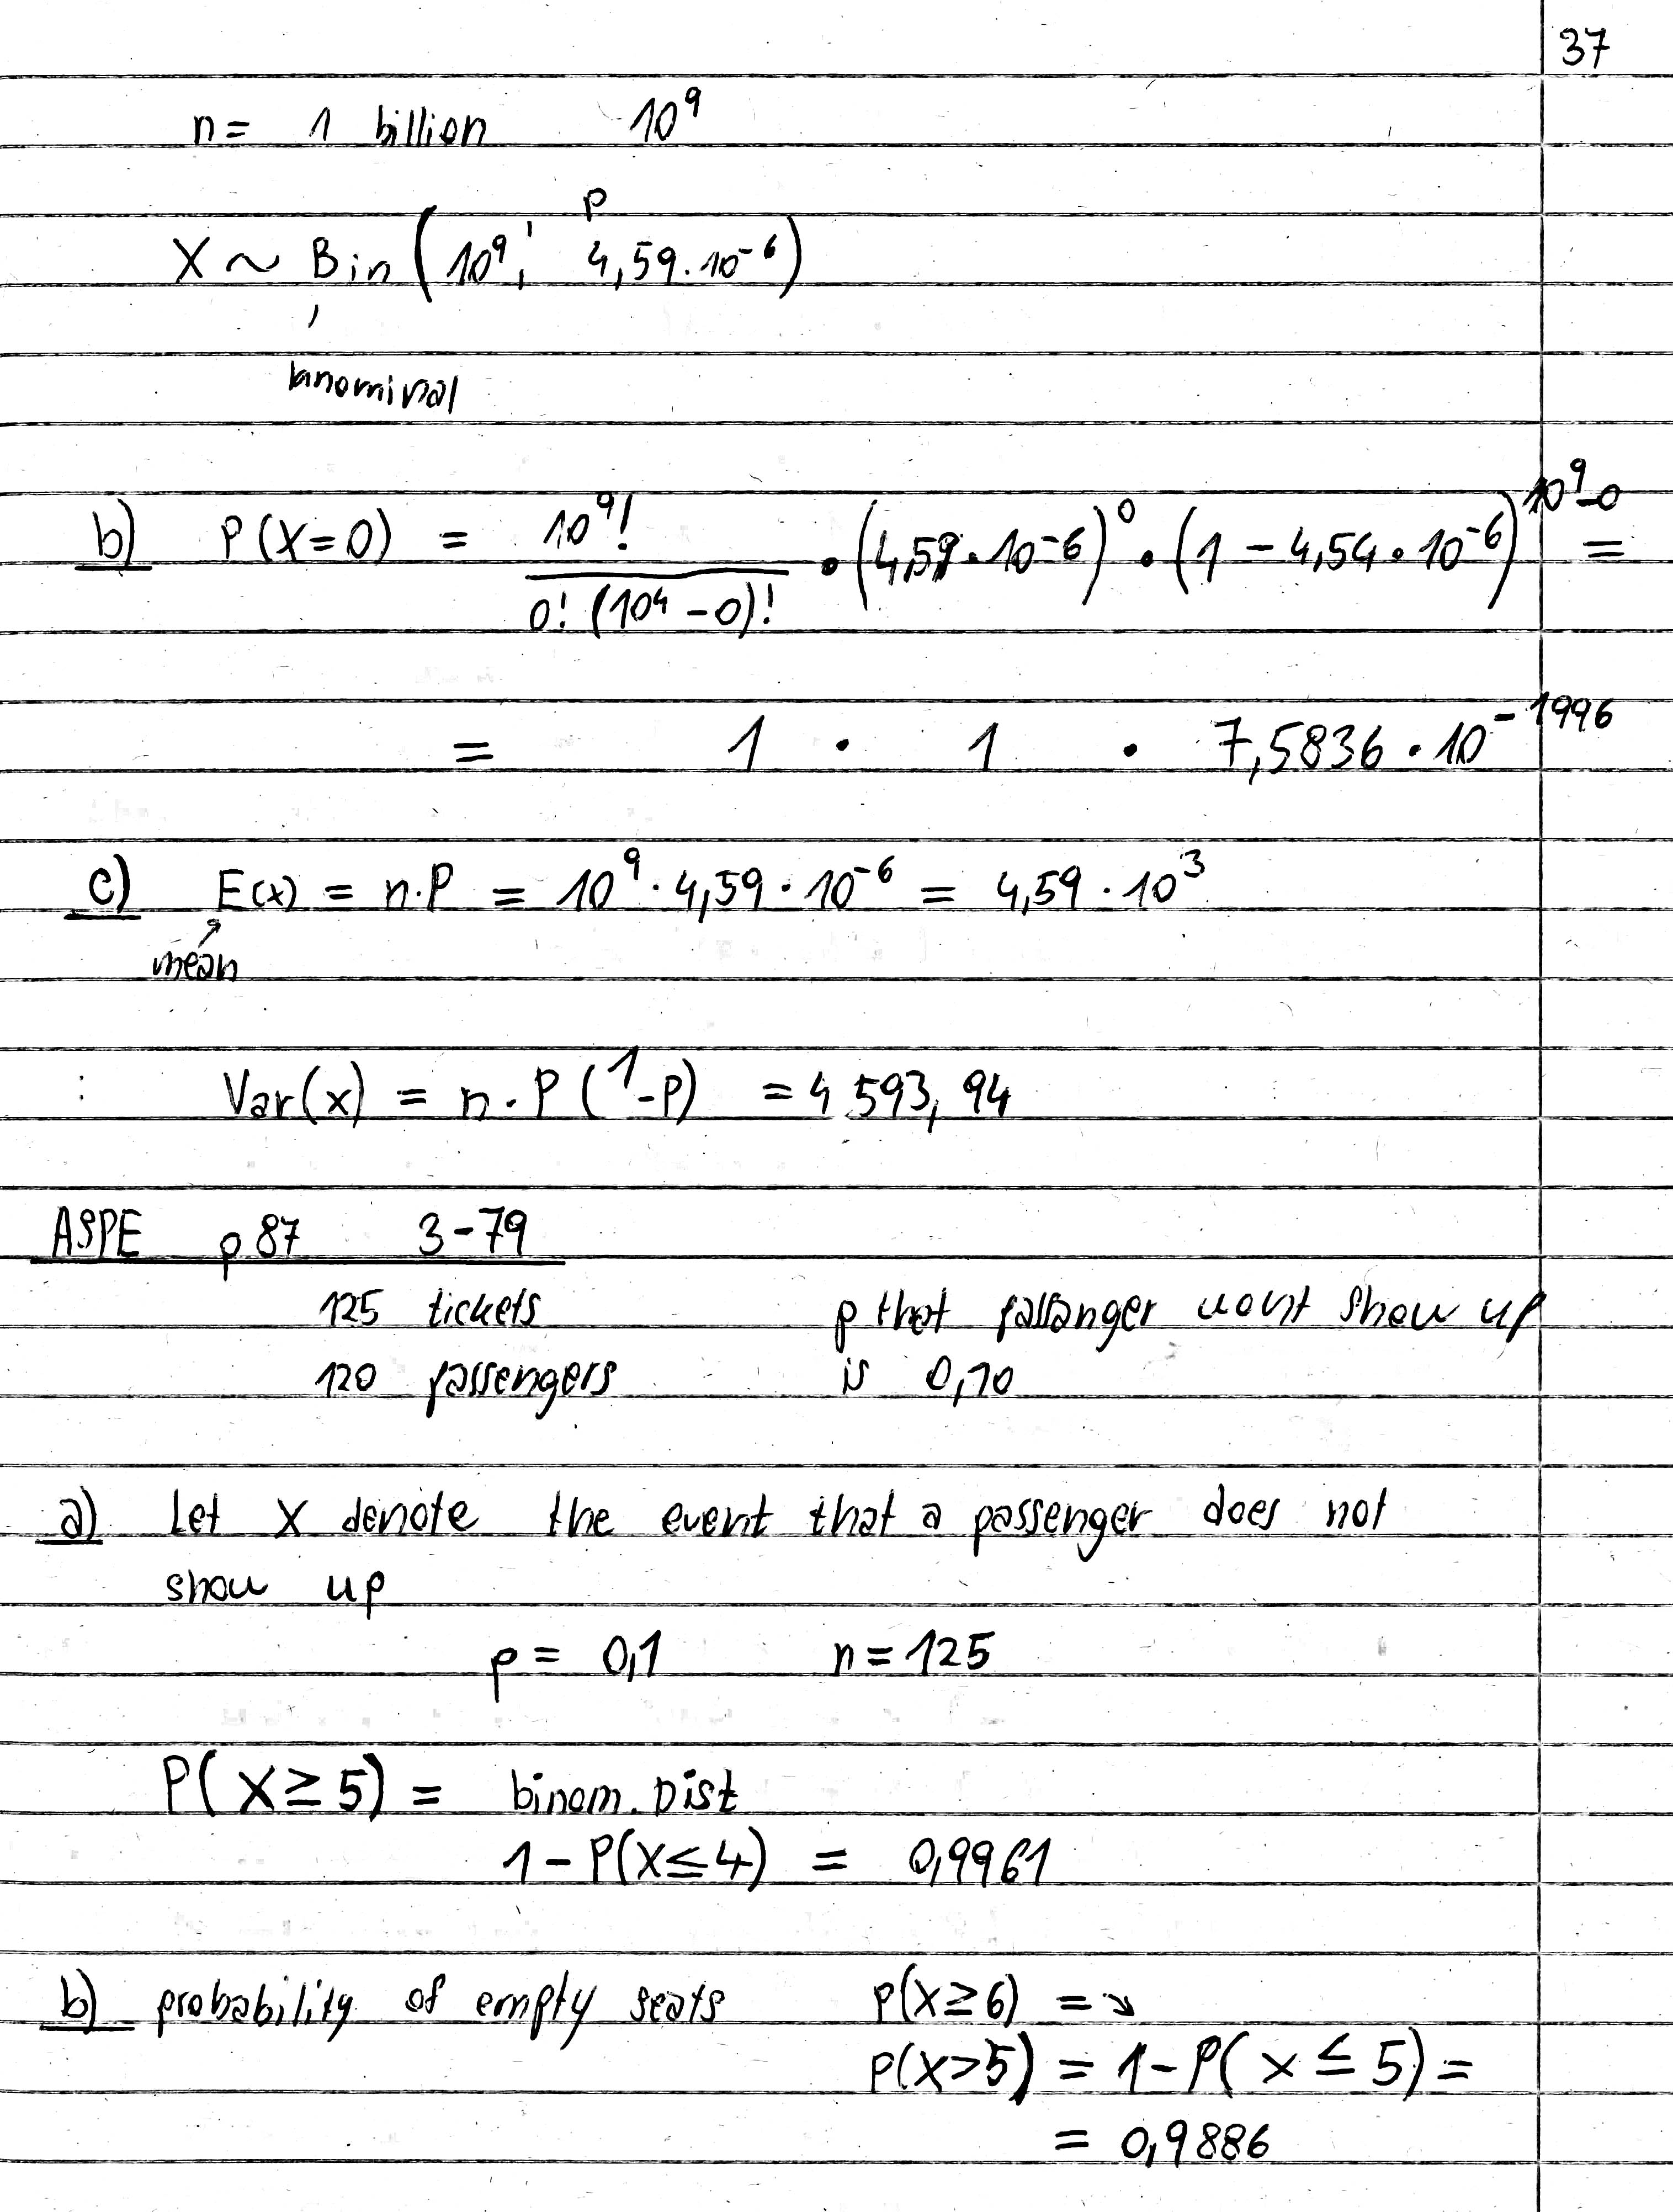 37
n = 1 billion 10⁹
p
X ~ Bin (10⁹; 4,59·10⁻⁶)
binominal
b) P(X=0) = 10⁹! / 0! (10⁴ - 0)! • (4,59·10⁻⁶)⁰ • (1 - 4,54•10⁻⁶)^10⁹-0 =
= 1 · 1 · 7,5836·10⁻¹⁹⁹⁶
c) E(x) = n.P = 10⁹·4,59·10⁻⁶ = 4,59·10³
mean
: Var(x) = n.P(1-P) = 4 593,94
ASPE p87 3-79
125 tickets p that passanger wont show up
120 passengers is 0,10
a) Let X denote the event that a passenger does not
show up
p = 0,1 n = 125
P(X ≥ 5) = binom.Dist
1 - P(X ≤ 4) = 0,9961
b) probability of empty seats P(X ≥ 6) = ↘
P(X > 5) = 1 - P(x ≤ 5) =
= 0,9886